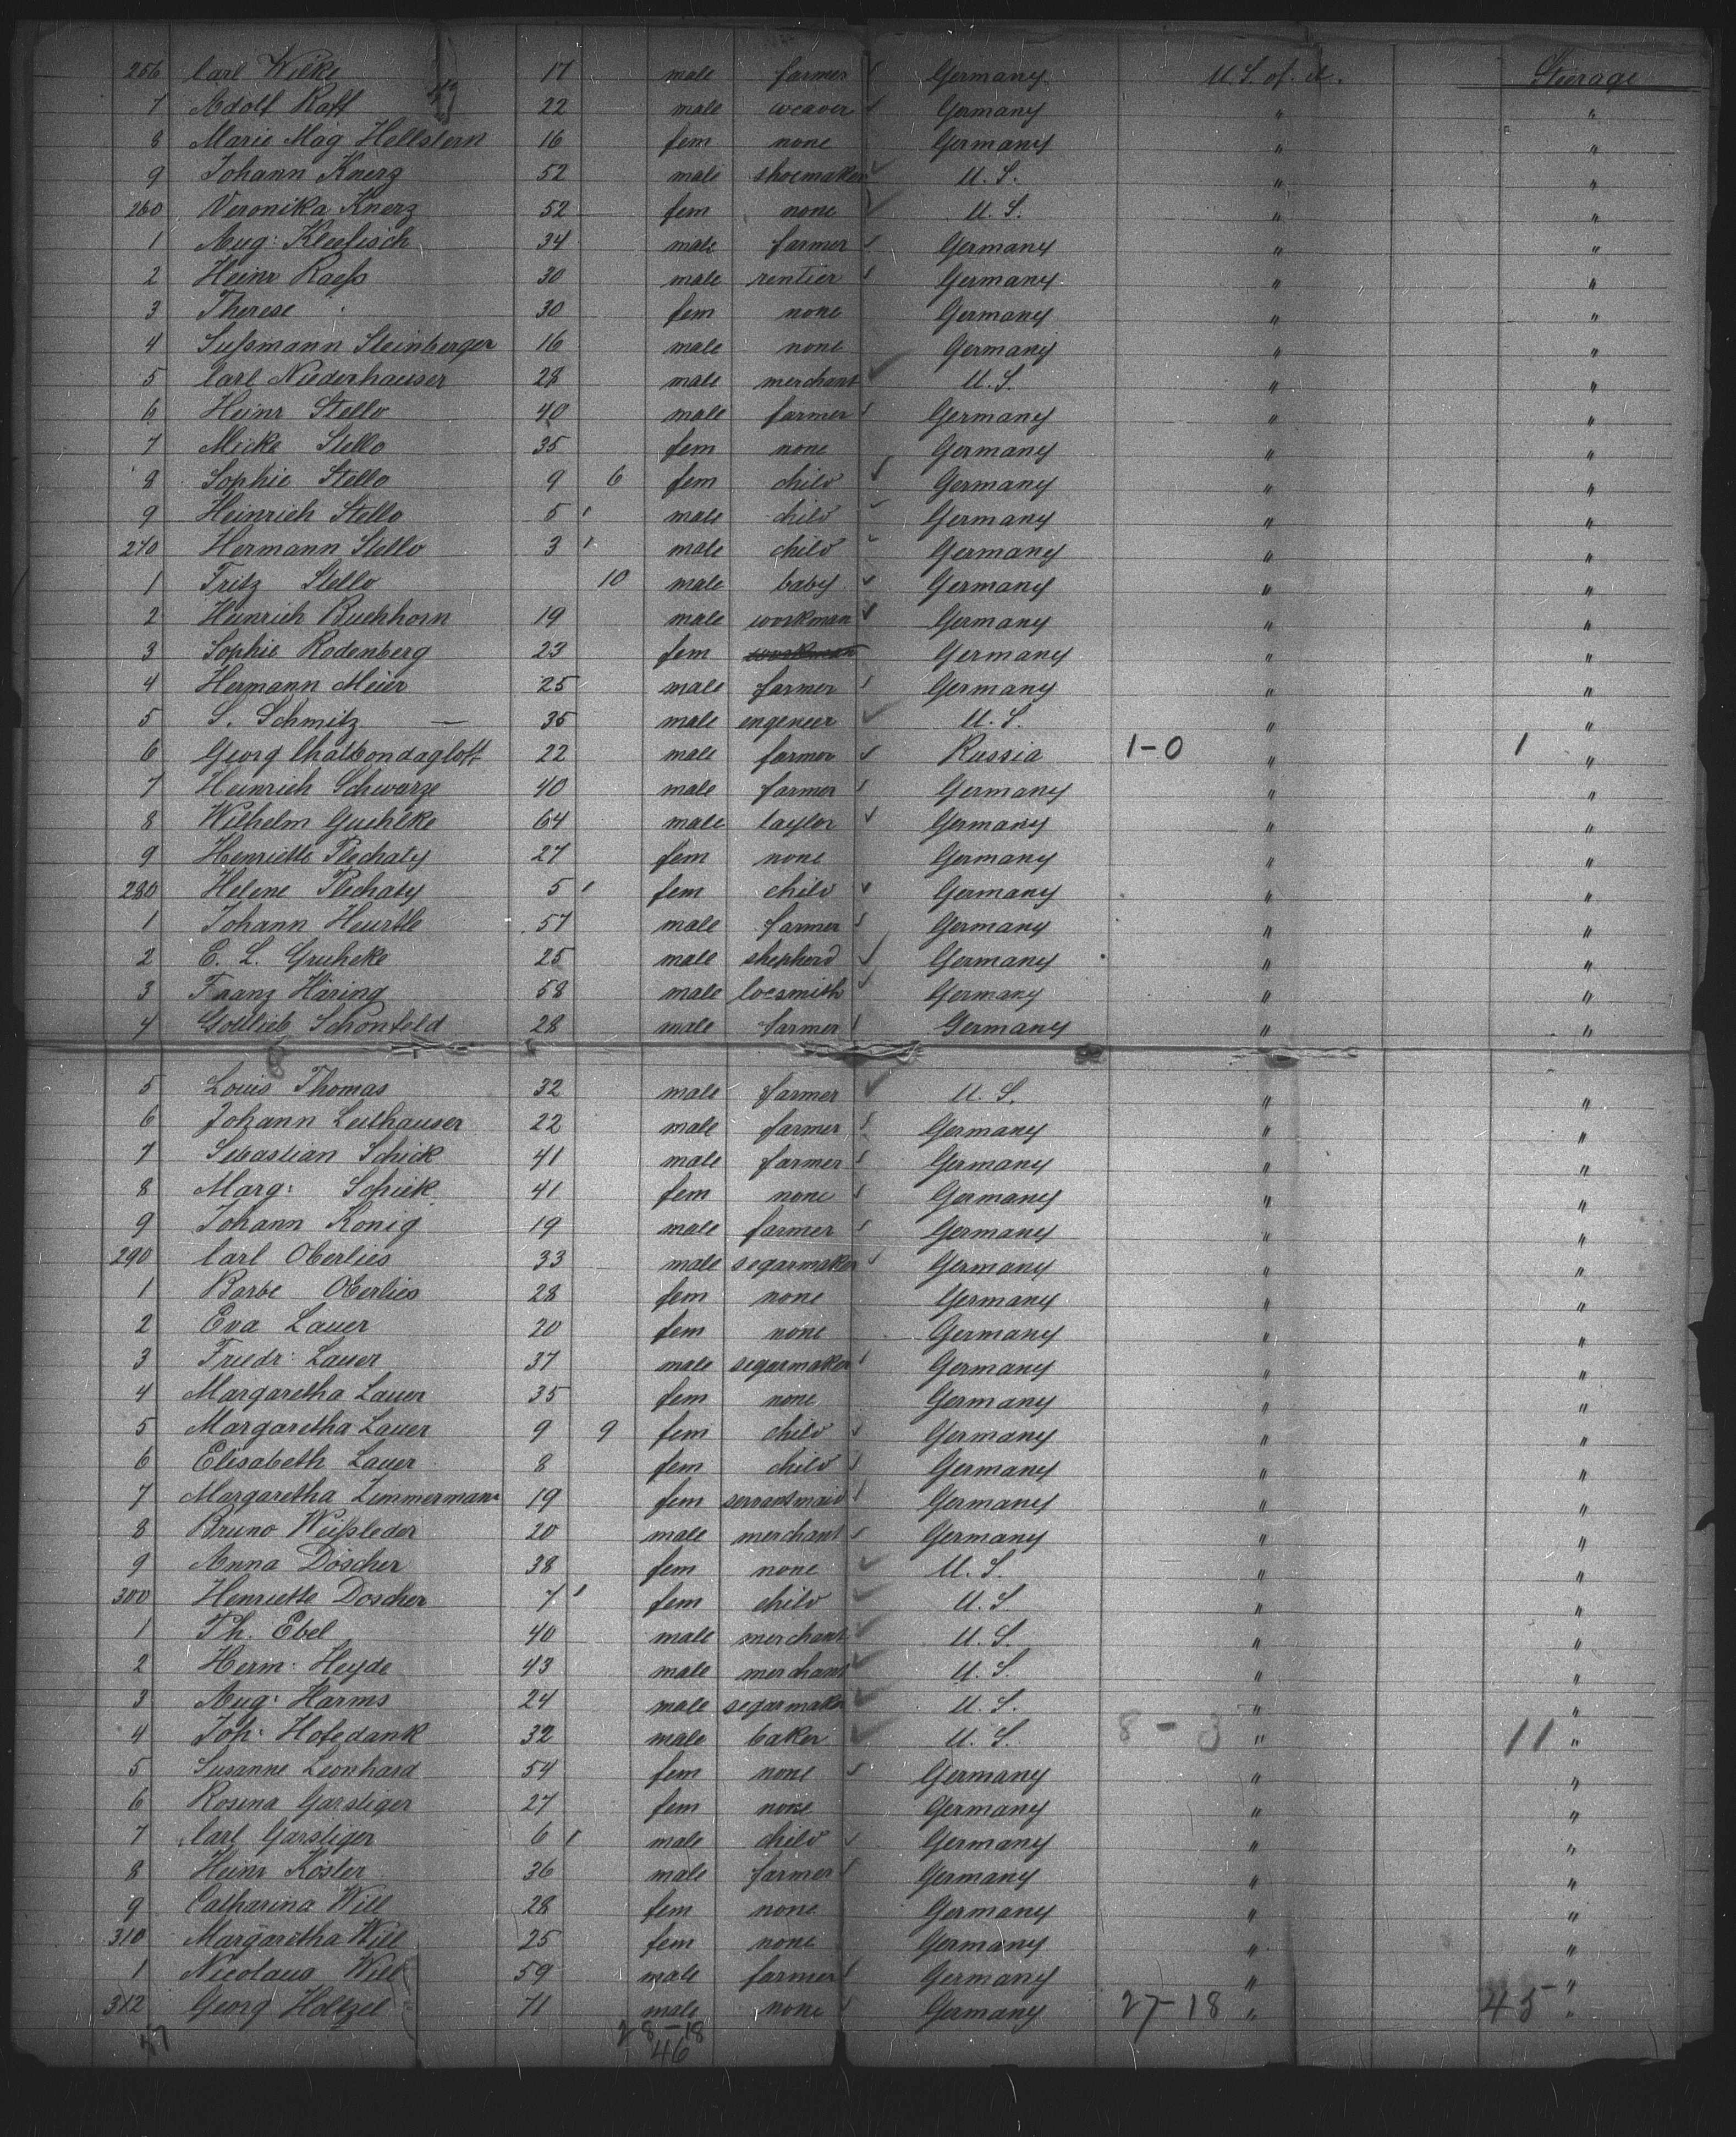 256 Carl Wilke 17 male farmer Germany U. S. of. A. Steerage
7 Adolf Raff 22 male weaver Germany " "
8 Marie Mag Hellstern 16 fem none Germany " "
9 Johann Knerz 52 male shoemaker U. S. " "
260 Veronika Knerz 52 fem none U. S. " "
1 Aug: Kleefisch 34 male farmer Germany " "
2 Heinr Raeß 30 male rentier Germany " "
3 Therese " 30 fem none Germany " "
4 Sußmann Steinberger 16 male none Germany " "
5 Carl Niederhauser 28 male merchant U. S. " "
6 Heinr Stello 40 male farmer Germany " "
7 Mieke Stello 35 fem none Germany " "
8 Sophie Stello 9 6 fem child Germany " "
9 Heinrich Stello 5 male child Germany " "
270 Hermann Stello 3 male child Germany " "
1 Fritz Stello 10 male baby Germany " "
2 Heinrich Buchhorn 19 male workman Germany " "
3 Sophie Rodenberg 23 fem workman Germany " "
4 Hermann Meier 25 male farmer Germany " "
5 S. Schmitz — 35 male engeneer U. S. " "
6 Georg 22 male farmer Russia 1-0 " 1 "
7 Heinrich Schwarze 40 male farmer Germany " "
8 Wilhelm Guehlke 64 male taylor Germany " "
9 Henriette Plechaty 27 fem none Germany " "
280 Helene Plechaty 5 fem child Germany " "
1 Johann Heurtle 57 male farmer Germany " "
2 E. L. Gruheke 25 male shepherd Germany " "
3 Franz Häring 58 male locsmith Germany " "
4 Gottlieb Schönfeld 28 male farmer Germany " "
5 Louis Thomas 32 male farmer U. S. " "
6 Johann Leithauser 22 male farmer Germany " "
7 Sebastian Schick 41 male farmer Germany " "
8 Marg: Schick 41 fem none Germany " "
9 Johann König 19 male farmer Germany " "
290 Carl Oberlies 33 male segarmaker Germany " "
1 Barbe Oberlies 28 fem none Germany " "
2 Eva Lauer 20 fem none Germany " "
3 Friedr: Lauer 37 male segarmaker Germany " "
4 Margaretha Lauer 35 fem none Germany " "
5 Margaretha Lauer 9 9 fem child Germany " "
6 Elisabeth Lauer 8 fem child Germany " "
7 Margaretha Zimmermann 19 fem servantsmaid Germany " "
8 Bruno Weißleder 20 male merchant Germany " "
9 Anna Döscher 38 fem none U. S. " "
300 Henriette Doscher 7 fem child U. S. " "
1 Th. Ebel 40 male merchant U. S. " "
2 Herm: Heyde 43 male merchant U. S. " "
3 Aug: Harms 24 male segarmaker U. S. " "
4 Joh: Hofedank 32 male baker U. S. 8-3 " 11 "
5 Susanne Leonhard 54 fem none Germany " "
6 Rosina Garstiger 27 fem none Germany " "
7 Carl Garstiger 6 male child Germany " "
8 Heinr Köster 36 male farmer Germany " "
9 Catharina Will 28 fem none Germany " "
310 Margaretha Will 25 fem none Germany " "
1 Nicolaus Will 59 male farmer Germany " "
312 Georg Holtzel 71 male none Germany 27-18 " 45 "
57 28-18
46